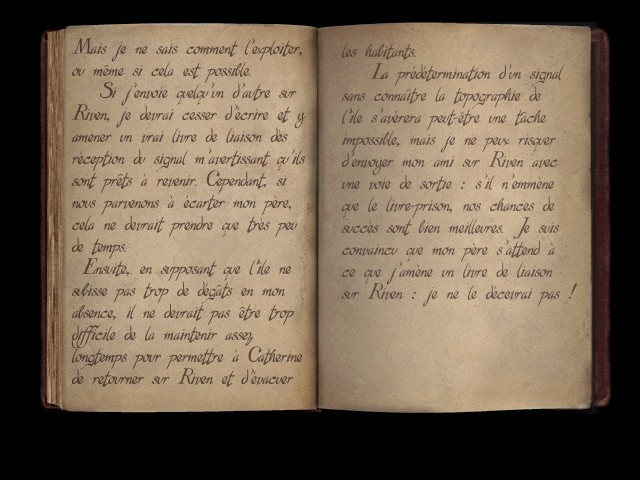 Mais je ne sais comment l'exploiter,
ou même si cela est possible.
Si j'envoie quelqu'un d'autre sur
Riven, je devrai cesser d'écrire et y
amener un vrai livre de liaison dès
réception du signal m'avertissant qu'ils
sont prêts à revenir. Cependant, si
nous parvenons à écarter mon père,
cela ne devrait prendre que très peu
de temps.
Ensuite, en supposant que l'île ne
subisse pas trop de dégâts en mon
absence, il ne devrait pas être trop
difficile de la maintenir assez
longtemps pour permettre à Catherine
de retourner sur Riven et d'évacuer
les habitants.
La prédétermination d'un signal
sans connaître la topographie de
l'île s'avèrera peut-être une tâche
impossible, mais je ne peux risquer
d'envoyer mon ami sur Riven avec
une voie de sortie : s'il n'emmène
que le livre-prison, nos chances de
succès sont bien meilleures. Je suis
convaincu que mon père s'attend à
ce que j'amène un livre de liaison
sur Riven : je ne le décevrai pas !